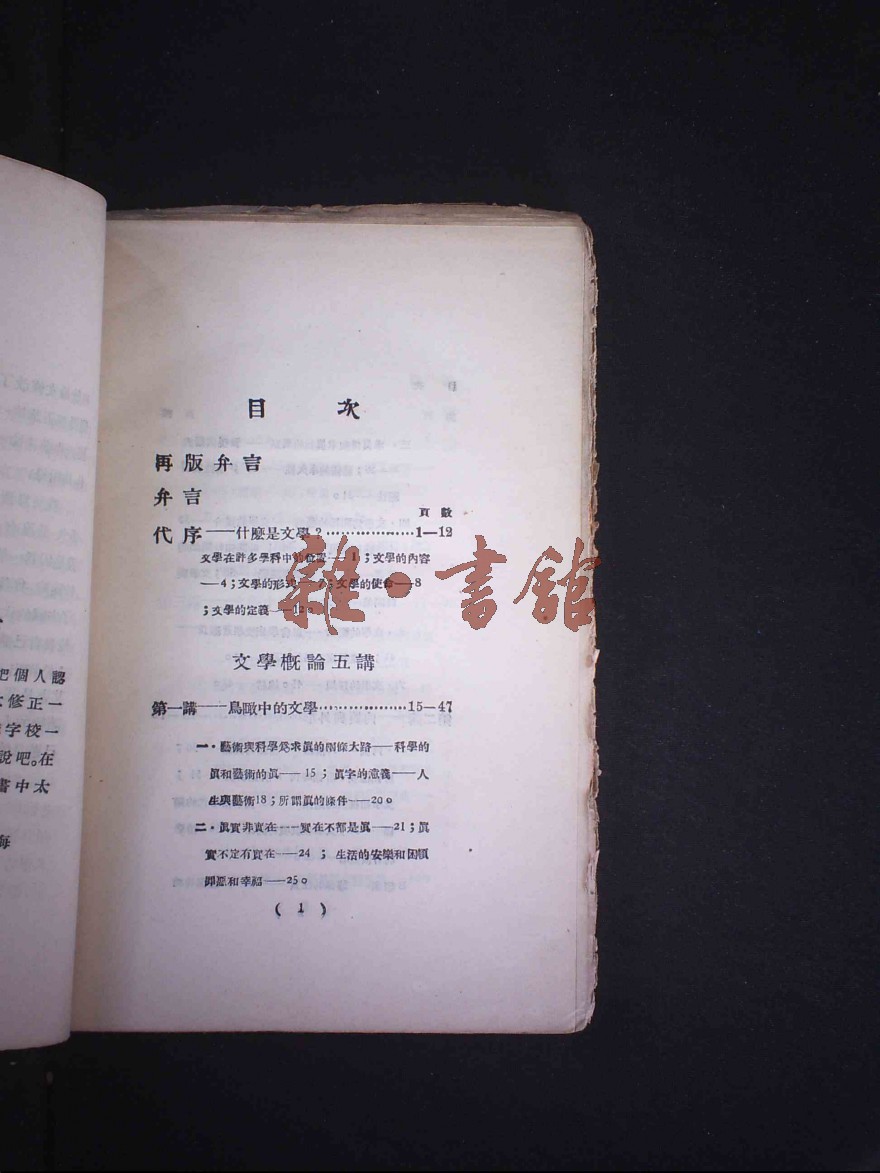 把個人認
修正一
字校一
說吧。在
書中太
海
目 次
再版弁言
弁言
頁數
代序——什麼是文學？………………1—12
文學在許多學科中的位置——1；文學的內容
——4；文學的形式——7；文學的使命——8
；文學的定義——12。
文學概論五講
第一講——鳥瞰中的文學………………15—47
一・藝術與科學爲求眞的兩條大路——科學的
眞和藝術的眞——15；眞字的意義——人
生與藝術18；所謂眞的條件——20。
二・眞實非實在——實在不都是眞——21；眞
實不定有實在——24；生活的安樂和困頓
卽源和幸福——25。
( 1 )
雜・書館